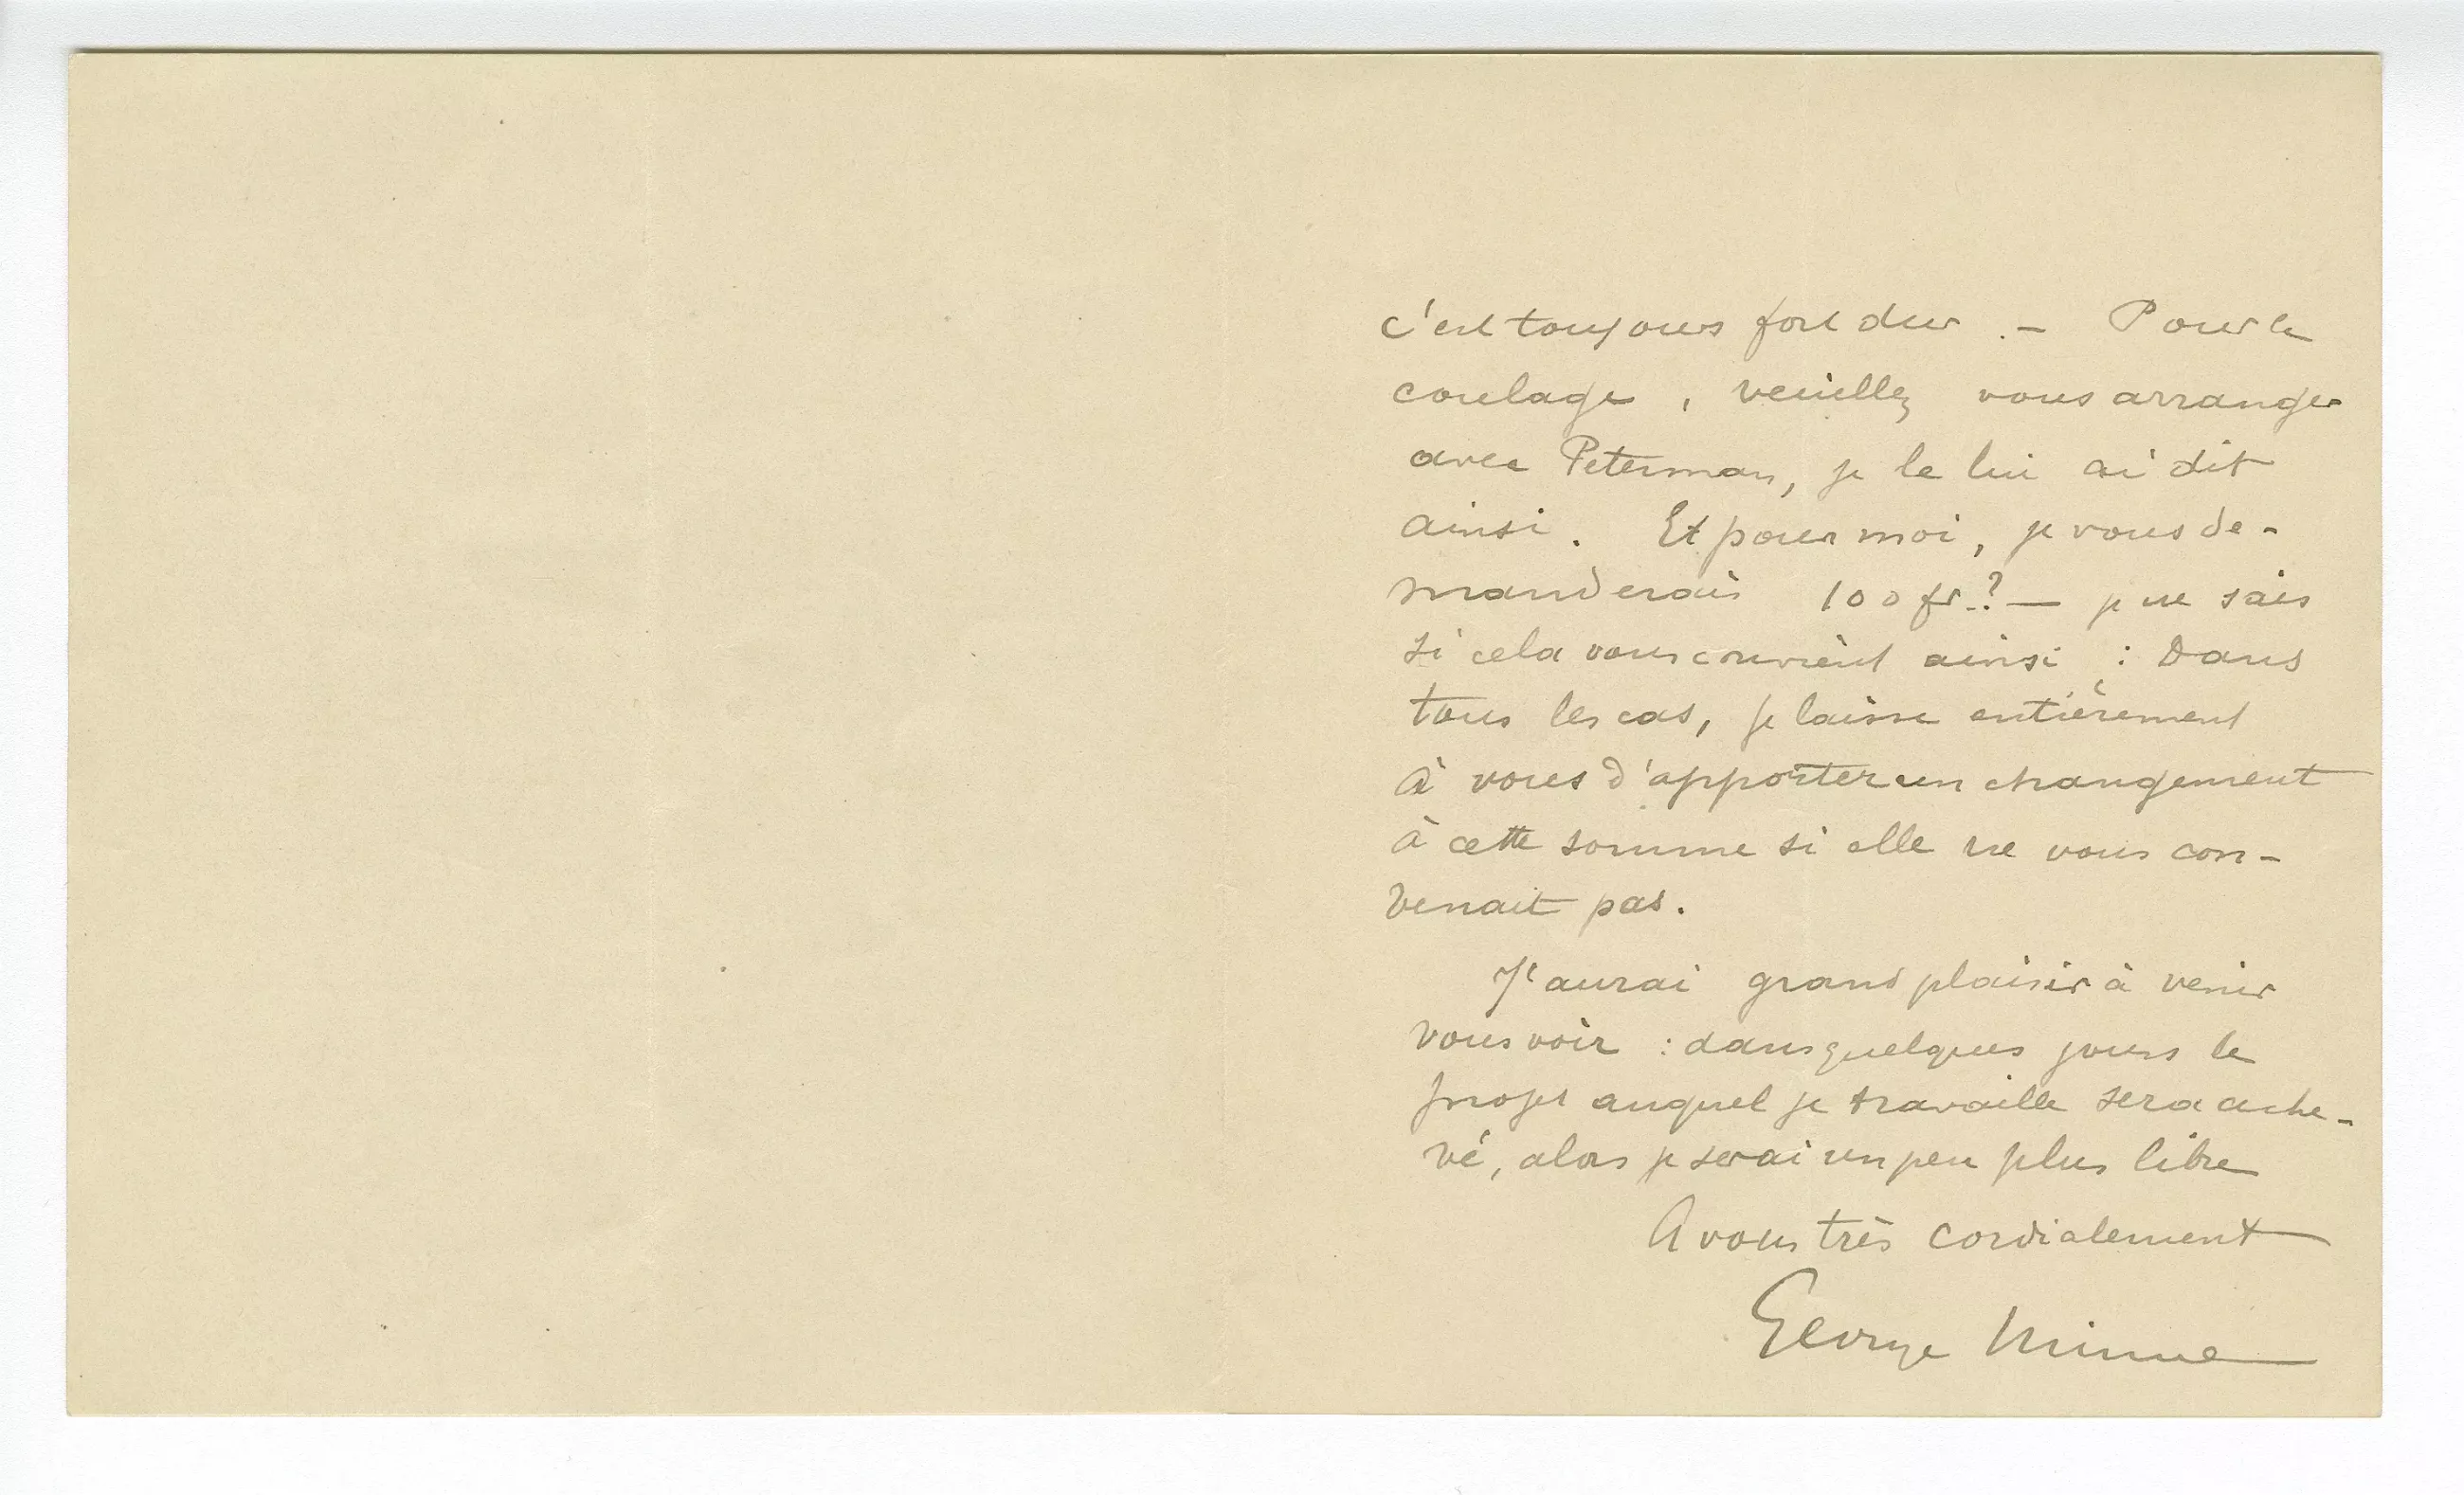 c'est toujours fort dur. – Pour le
coulage, veuillez vous arranger
avec Peterman, je le lui ai dit
ainsi. Et pour moi, je vous de-
manderais 100 fr.? — je ne sais
si cela vous convient ainsi : Dans
tous les cas, je laisse entièrement
à vous d'apporter un changement
à cette somme si elle ne vous con-
venait pas.
J'aurai grand plaisir à venir
vous voir : dans quelques jours le
projet auquel je travaille sera ache-
vé, alors je serai un peu plus libre
A vous très cordialement
George Minne